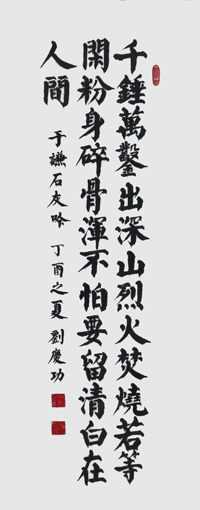 千錘萬鑿出深山烈火焚燒若等
閑粉身碎骨渾不怕要留清白在
人間
于謙石灰吟 丁酉之夏 劉慶功